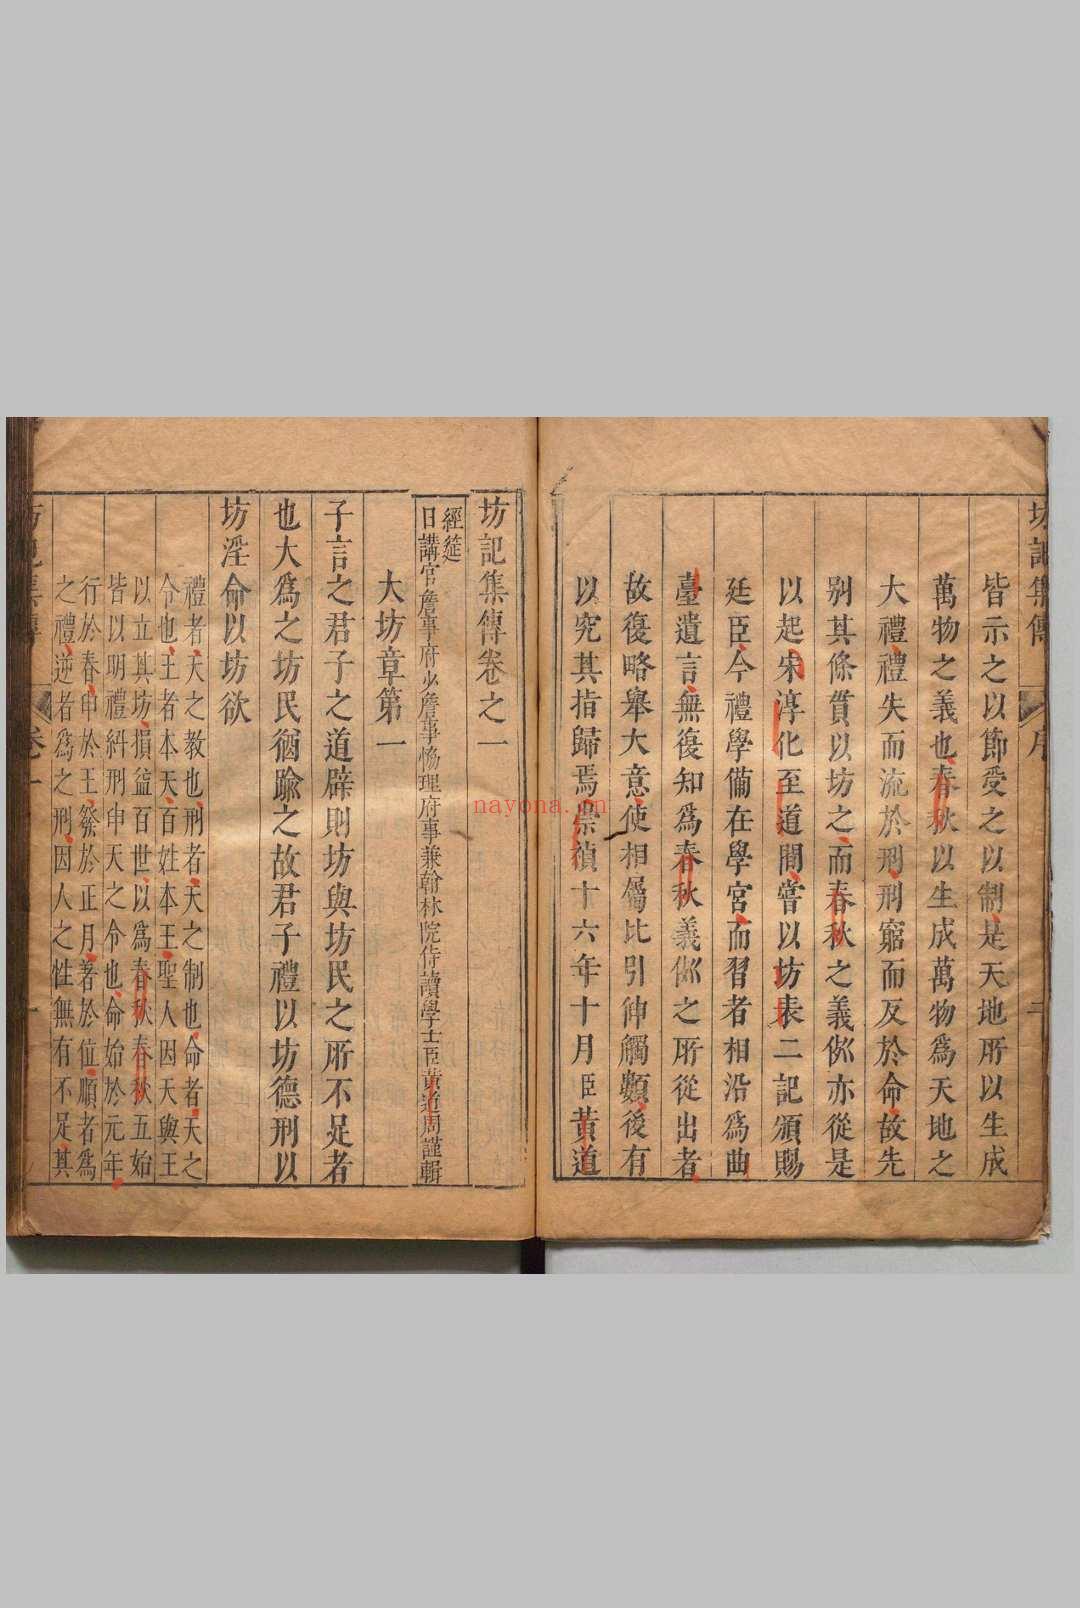 坊記集傳
序
二
皆示之以節受之以制是天地所以生成
萬物之義也春秋以生成萬物爲天地之
大禮禮失而流於刑刑窮而反於命故先
別其條貫以坊之而春秋之義佀亦從是
以起宋淳化至道間嘗以坊表二記頒賜
廷臣今禮學備在學宮而習者相沿爲曲
臺遺言無復知爲春秋義佀之所從出者
故復略舉大意使相屬比引伸觸類後有
以究其指歸焉崇禎十六年十月臣黃道
坊記集傳卷之一
經筵
日講官詹事府少詹事協理府事兼翰林院侍讀學士臣黃道周謹輯
大坊章第一
子言之君子之道辟則坊與坊民之所不足者
也大爲之坊民猶踰之故君子禮以坊德刑以
坊淫命以坊欲
禮者天之教也刑者天之制也命者天之
令也王者本天百姓本王聖人因天與王
以立其坊損益百世以爲春秋春秋五始
皆以明禮糾刑申天之令也命始於元年
行於春申於王發於正月著於位順者爲
之禮逆者爲之刑因人之性無有不足其
坊記集傳
卷一
一
nayona.cn